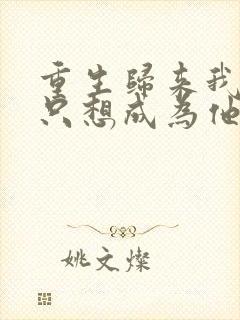 重生歸来我
只想成为他
姚文燦